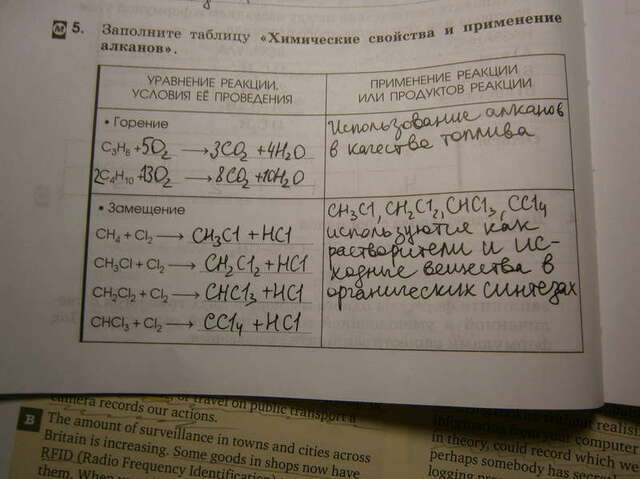 5. Заполните таблицу «Химические свойства и применение
алканов».
УРАВНЕНИЕ РЕАКЦИИ,
УСЛОВИЯ ЕЁ ПРОВЕДЕНИЯ
ПРИМЕНЕНИЕ РЕАКЦИИ
ИЛИ ПРОДУКТОВ РЕАКЦИИ
• Горение
C₃H₈ + 5O₂ → 3CO₂ + 4H₂O
2C₄H₁₀ + 13O₂ → 8CO₂ + 10H₂O
Использование алканов
в качестве топлива
• Замещение
CH₄ + Cl₂ → CH₃Cl + HCl
CH₃Cl + Cl₂ → CH₂Cl₂ + HCl
CH₂Cl₂ + Cl₂ → CHCl₃ + HCl
CHCl₃ + Cl₂ → CCl₄ + HCl
CH₃Cl, CH₂Cl₂, CHCl₃, CCl₄
используются как
растворители и ис-
ходные вещества в
органических синтезах
camera records our actions.
of travel on public transport a
B The amount of surveillance in towns and cities across
Britain is increasing. Some goods in shops now have
RFID (Radio Frequency Identification)
them. When
without realisi
information from your computer
in theory, could record which we
perhaps somebody has secre
logging